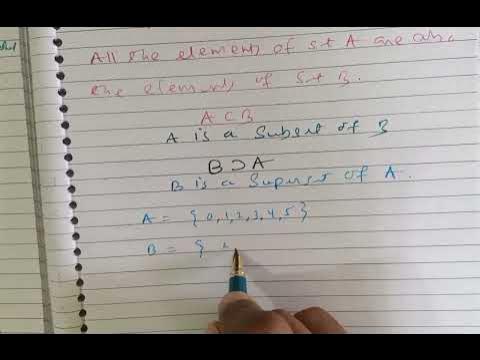 All the elements of set A are also
the elements of set B.
A ⊂ B
A is a Subset of B
B ⊃ A
B is a Superset of A.
A = { 0, 1, 2, 3, 4, 5 }
B = {